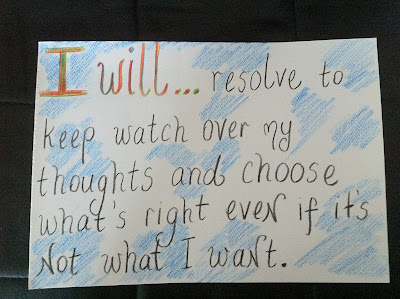 I will... resolve to
keep watch over my
thoughts and choose
what's right even if it's
Not what I want.